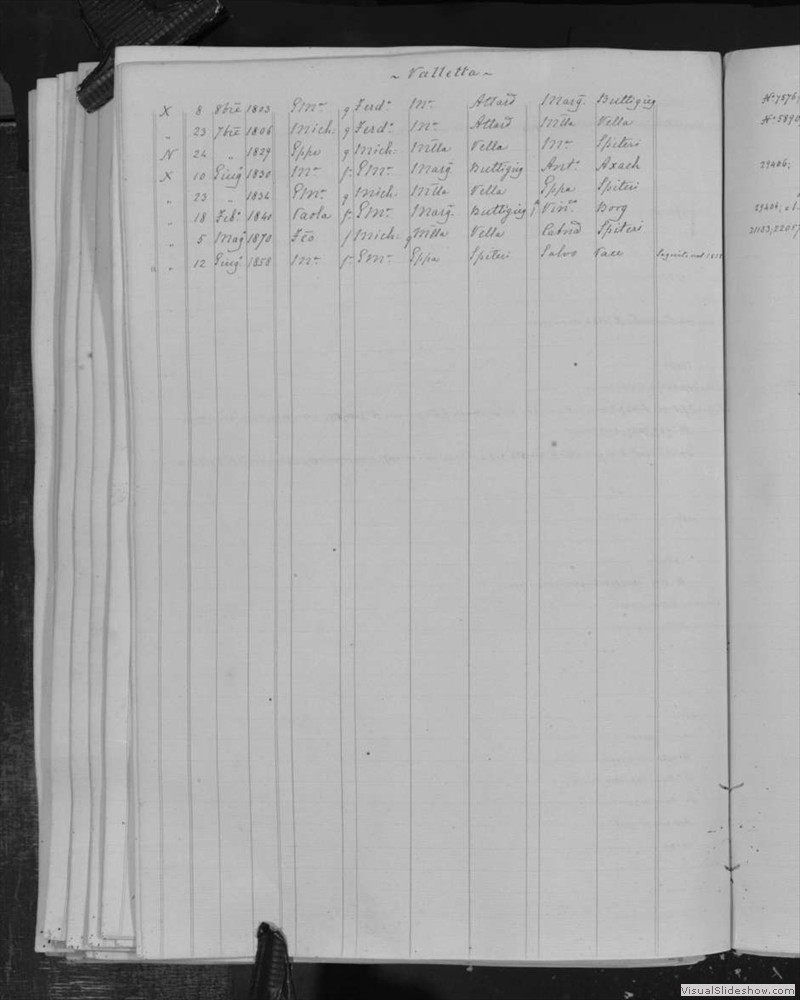 ~ Valletta ~
X 8 8bre 1803 Gma g Ferdo Ma Attard Marga Buttigieg
" 23 7bre 1806 Mich: g Ferdo Ma Attard Milla Vella
N 24 " 1829 Gppa g Mich: Milla Vella Ma Spiteri
X 10 Giugo 1830 Ma f Gma Marga Buttigieg Anta Axach
" 23 " 1834 Gma g Mich: Milla Vella Gppa Spiteri
" 18 Febo 1840 Paola f Gma Marga Buttigieg Borg
" 5 Mago 1870 f Mich: g Milla Vella Spiteri
" " 12 Giugo 1858 Ma f Gma Gppa Spiteri Salvo Pace
No 7876;
No 5890
29406;
29406;
21123; 22057
VisualSlideshow.com